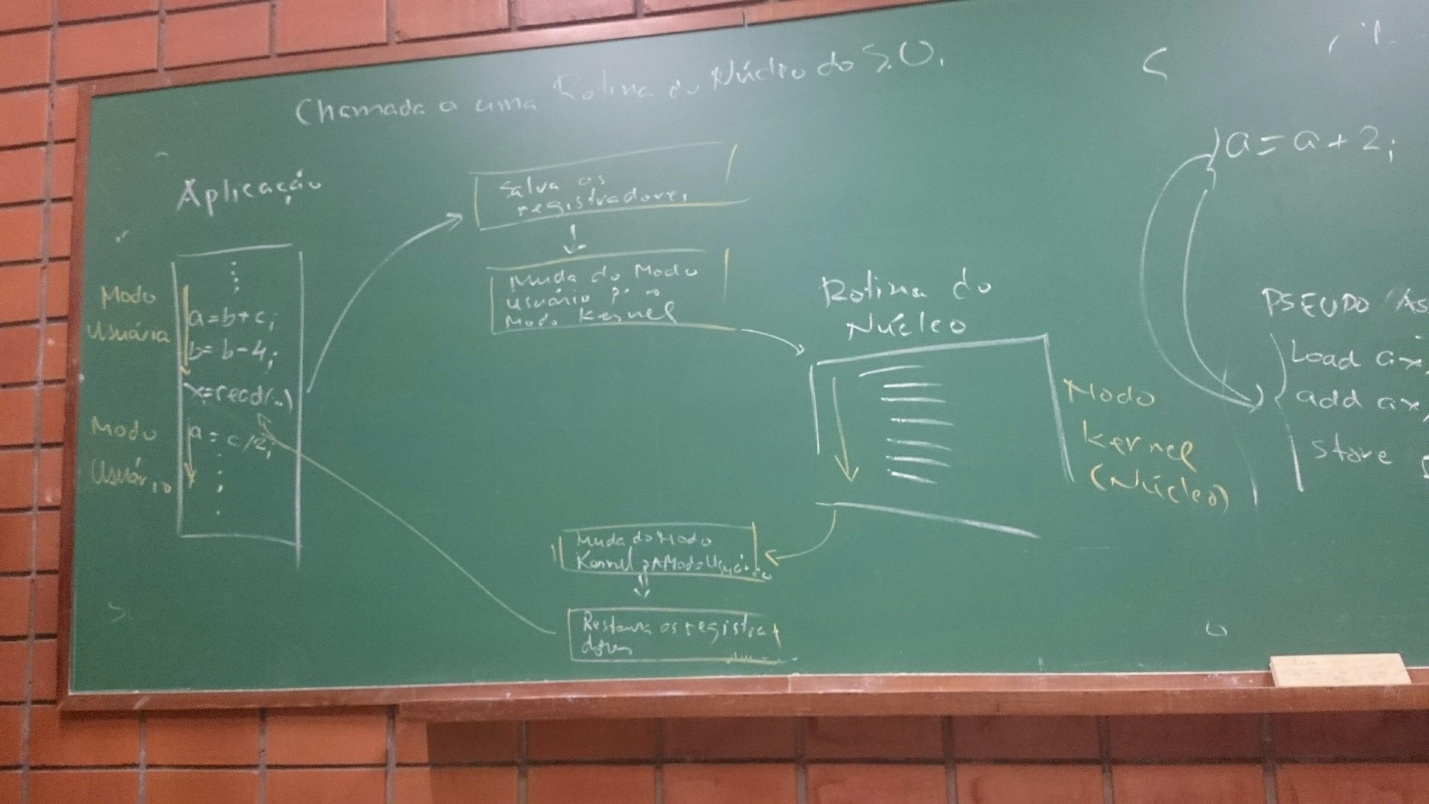 Chamada a uma Rotina do Núcleo do S.O.
Aplicação
Modo
Usuária
a=b+c;
b=b-4;
x=read(..)
Modo
Usuário
a=c/2;
Salva os
registradores
Muda do Modo
Usuário p/ o
Modo Kernel
Rotina do
Núcleo
Modo
Kernel
(Núcleo)
Muda do Modo
Kernel pA Modo Usuário
Restaura os registra
dores
C
a=a+2;
PSEUDO
Load ax,
add ax,
store